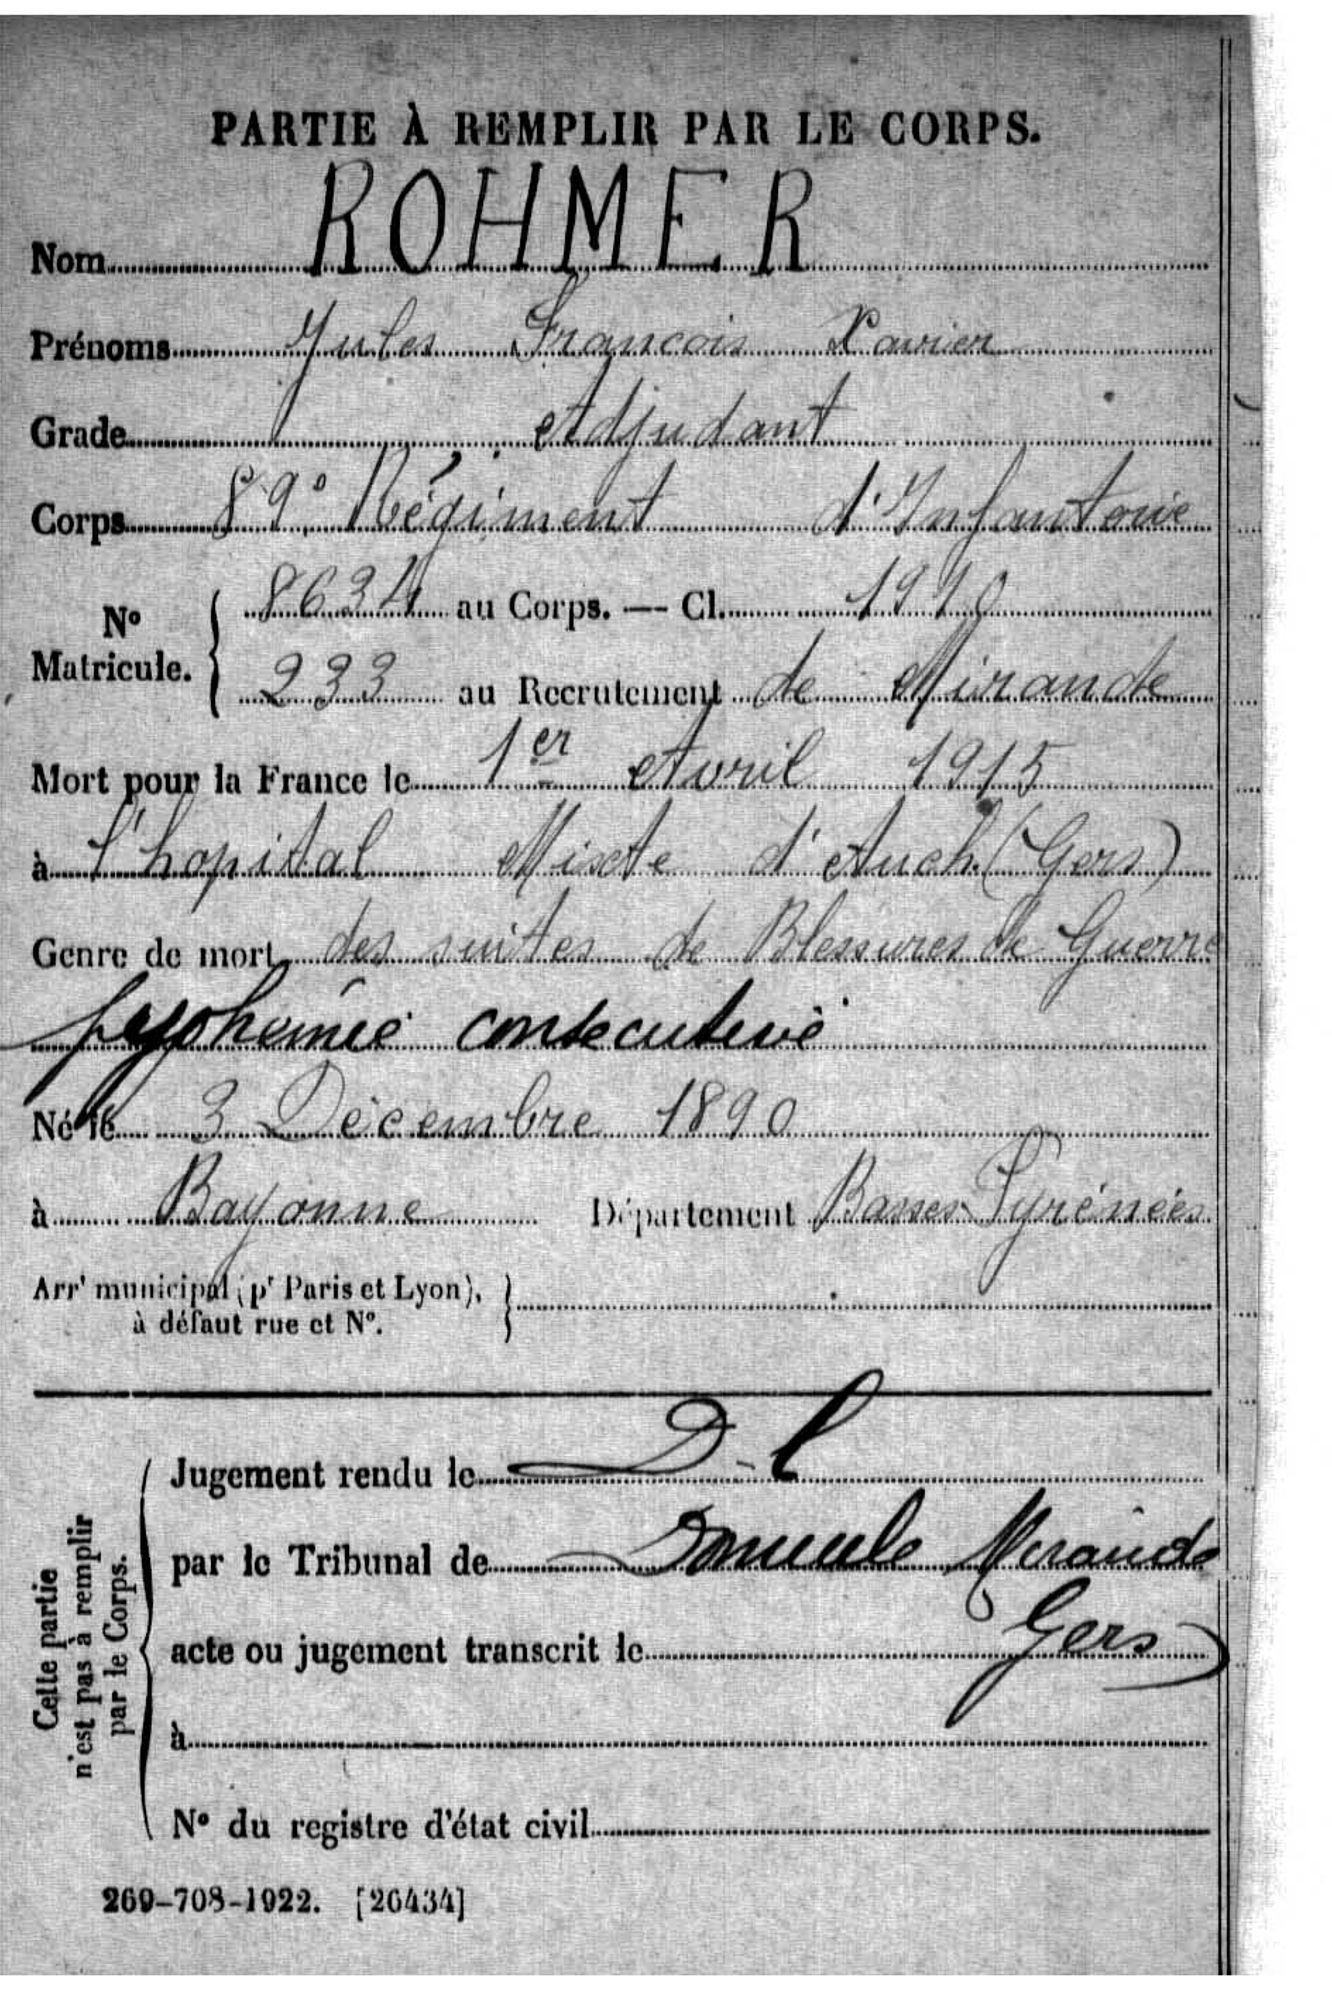 PARTIE À REMPLIR PAR LE CORPS.
Nom ROHMER
Prénoms Jules François Xavier
Grade Adjudant
Corps 89e Régiment d'Infanterie
No Matricule. { 8634 au Corps. — Cl. 1910
233 au Recrutement de Mirande
Mort pour la France le 1er Avril 1915
à l'hopital Mixte d'Auch (Gers)
Genre de mort des suites de Blessures de Guerre
pyohémie consecutive
Né le 3 Décembre 1890
à Bayonne Département Basses-Pyrénées
Arrt municipal (pr Paris et Lyon),
à défaut rue et No. }
Jugement rendu le D-l
par le Tribunal de Mirande
acte ou jugement transcrit le Gers)
à
No du registre d'état civil
Cette partie
n'est pas à remplir
par le Corps.
269-708-1922. [26434]